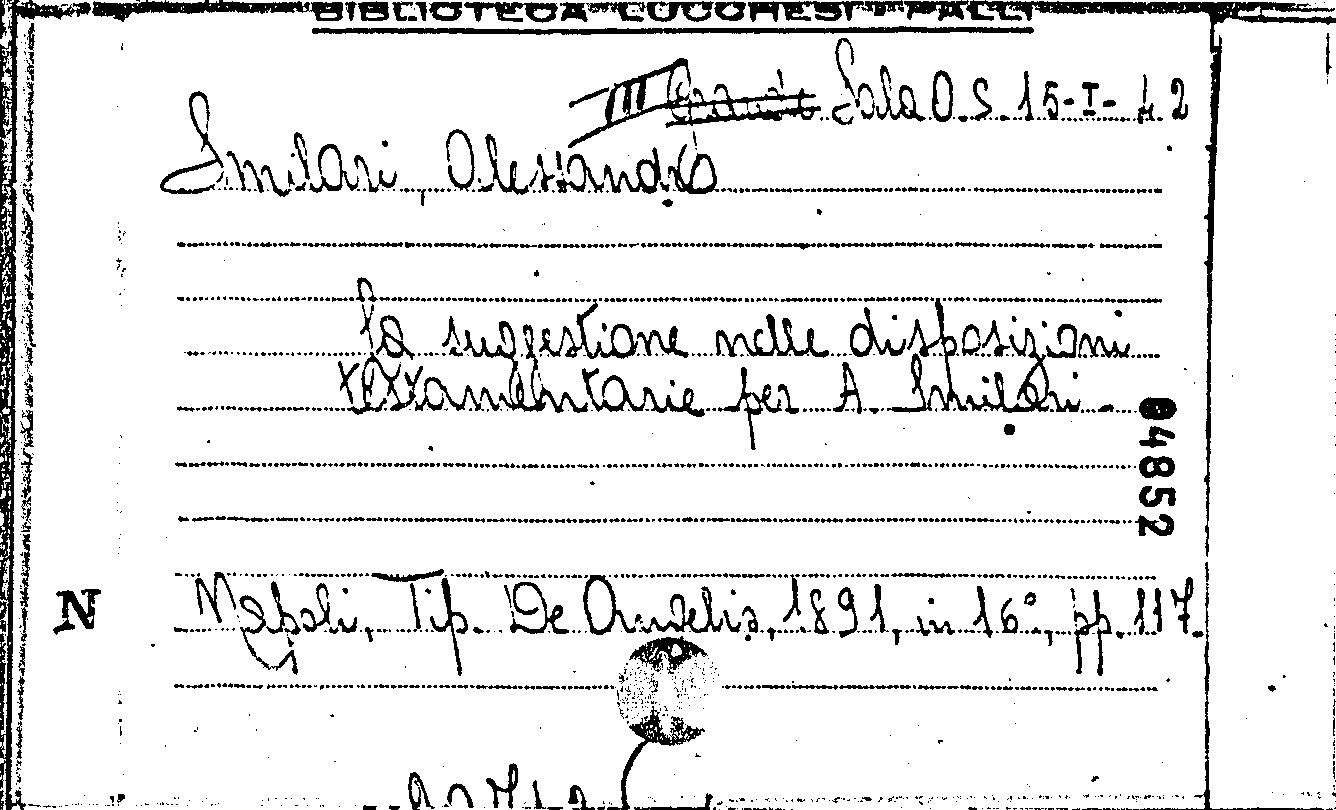 BIBLIOTECA LUCCHESI - PALLI
III Grande Sala O.S. 15-I-42
Smilari, Alessandro
La suggestione nelle disposizioni
testamentarie per A. Smilari.
04852
N
Napoli, Tip. De Angelis, 1891, in 16°, pp. 117.